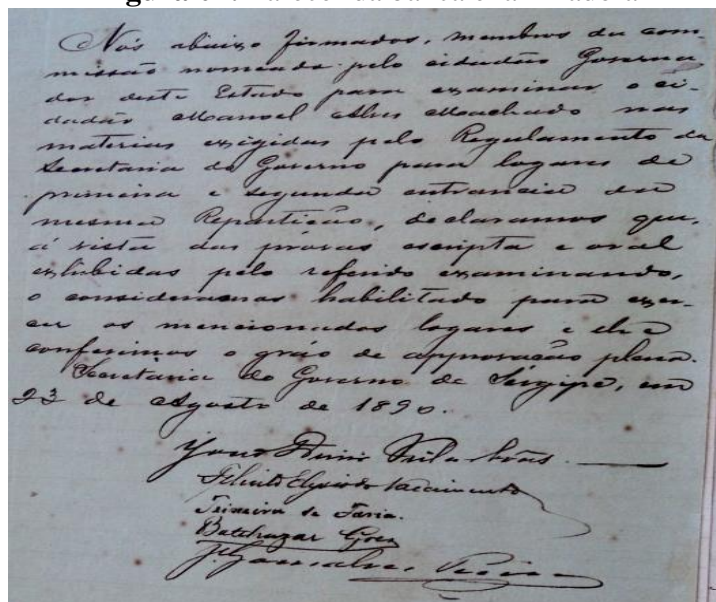 Nós abaixo firmados, membros da com-
missão nomeada pelo cidadão Governa-
dor deste Estado para examinar o ci-
dadão Manoel Alves Machado nas
materias exigidas pelo Regulamento da
Secretaria do Governo para logares de
primeira e segunda entrancia da
mesma Repartição, declaramos que,
á vista das próvas escripta e oral
exhibidas pelo referido examinando,
o consideramos habilitado para exer-
cer os mencionados logares e lhe
conferimos o gráo de approvação plena.
Secretaria do Governo de Sergipe, em
23 de Agosto de 1890.
Villas-bôas
Nascimento
Teixeira de Faria.
Balthazar Góes
J. Gonsalves